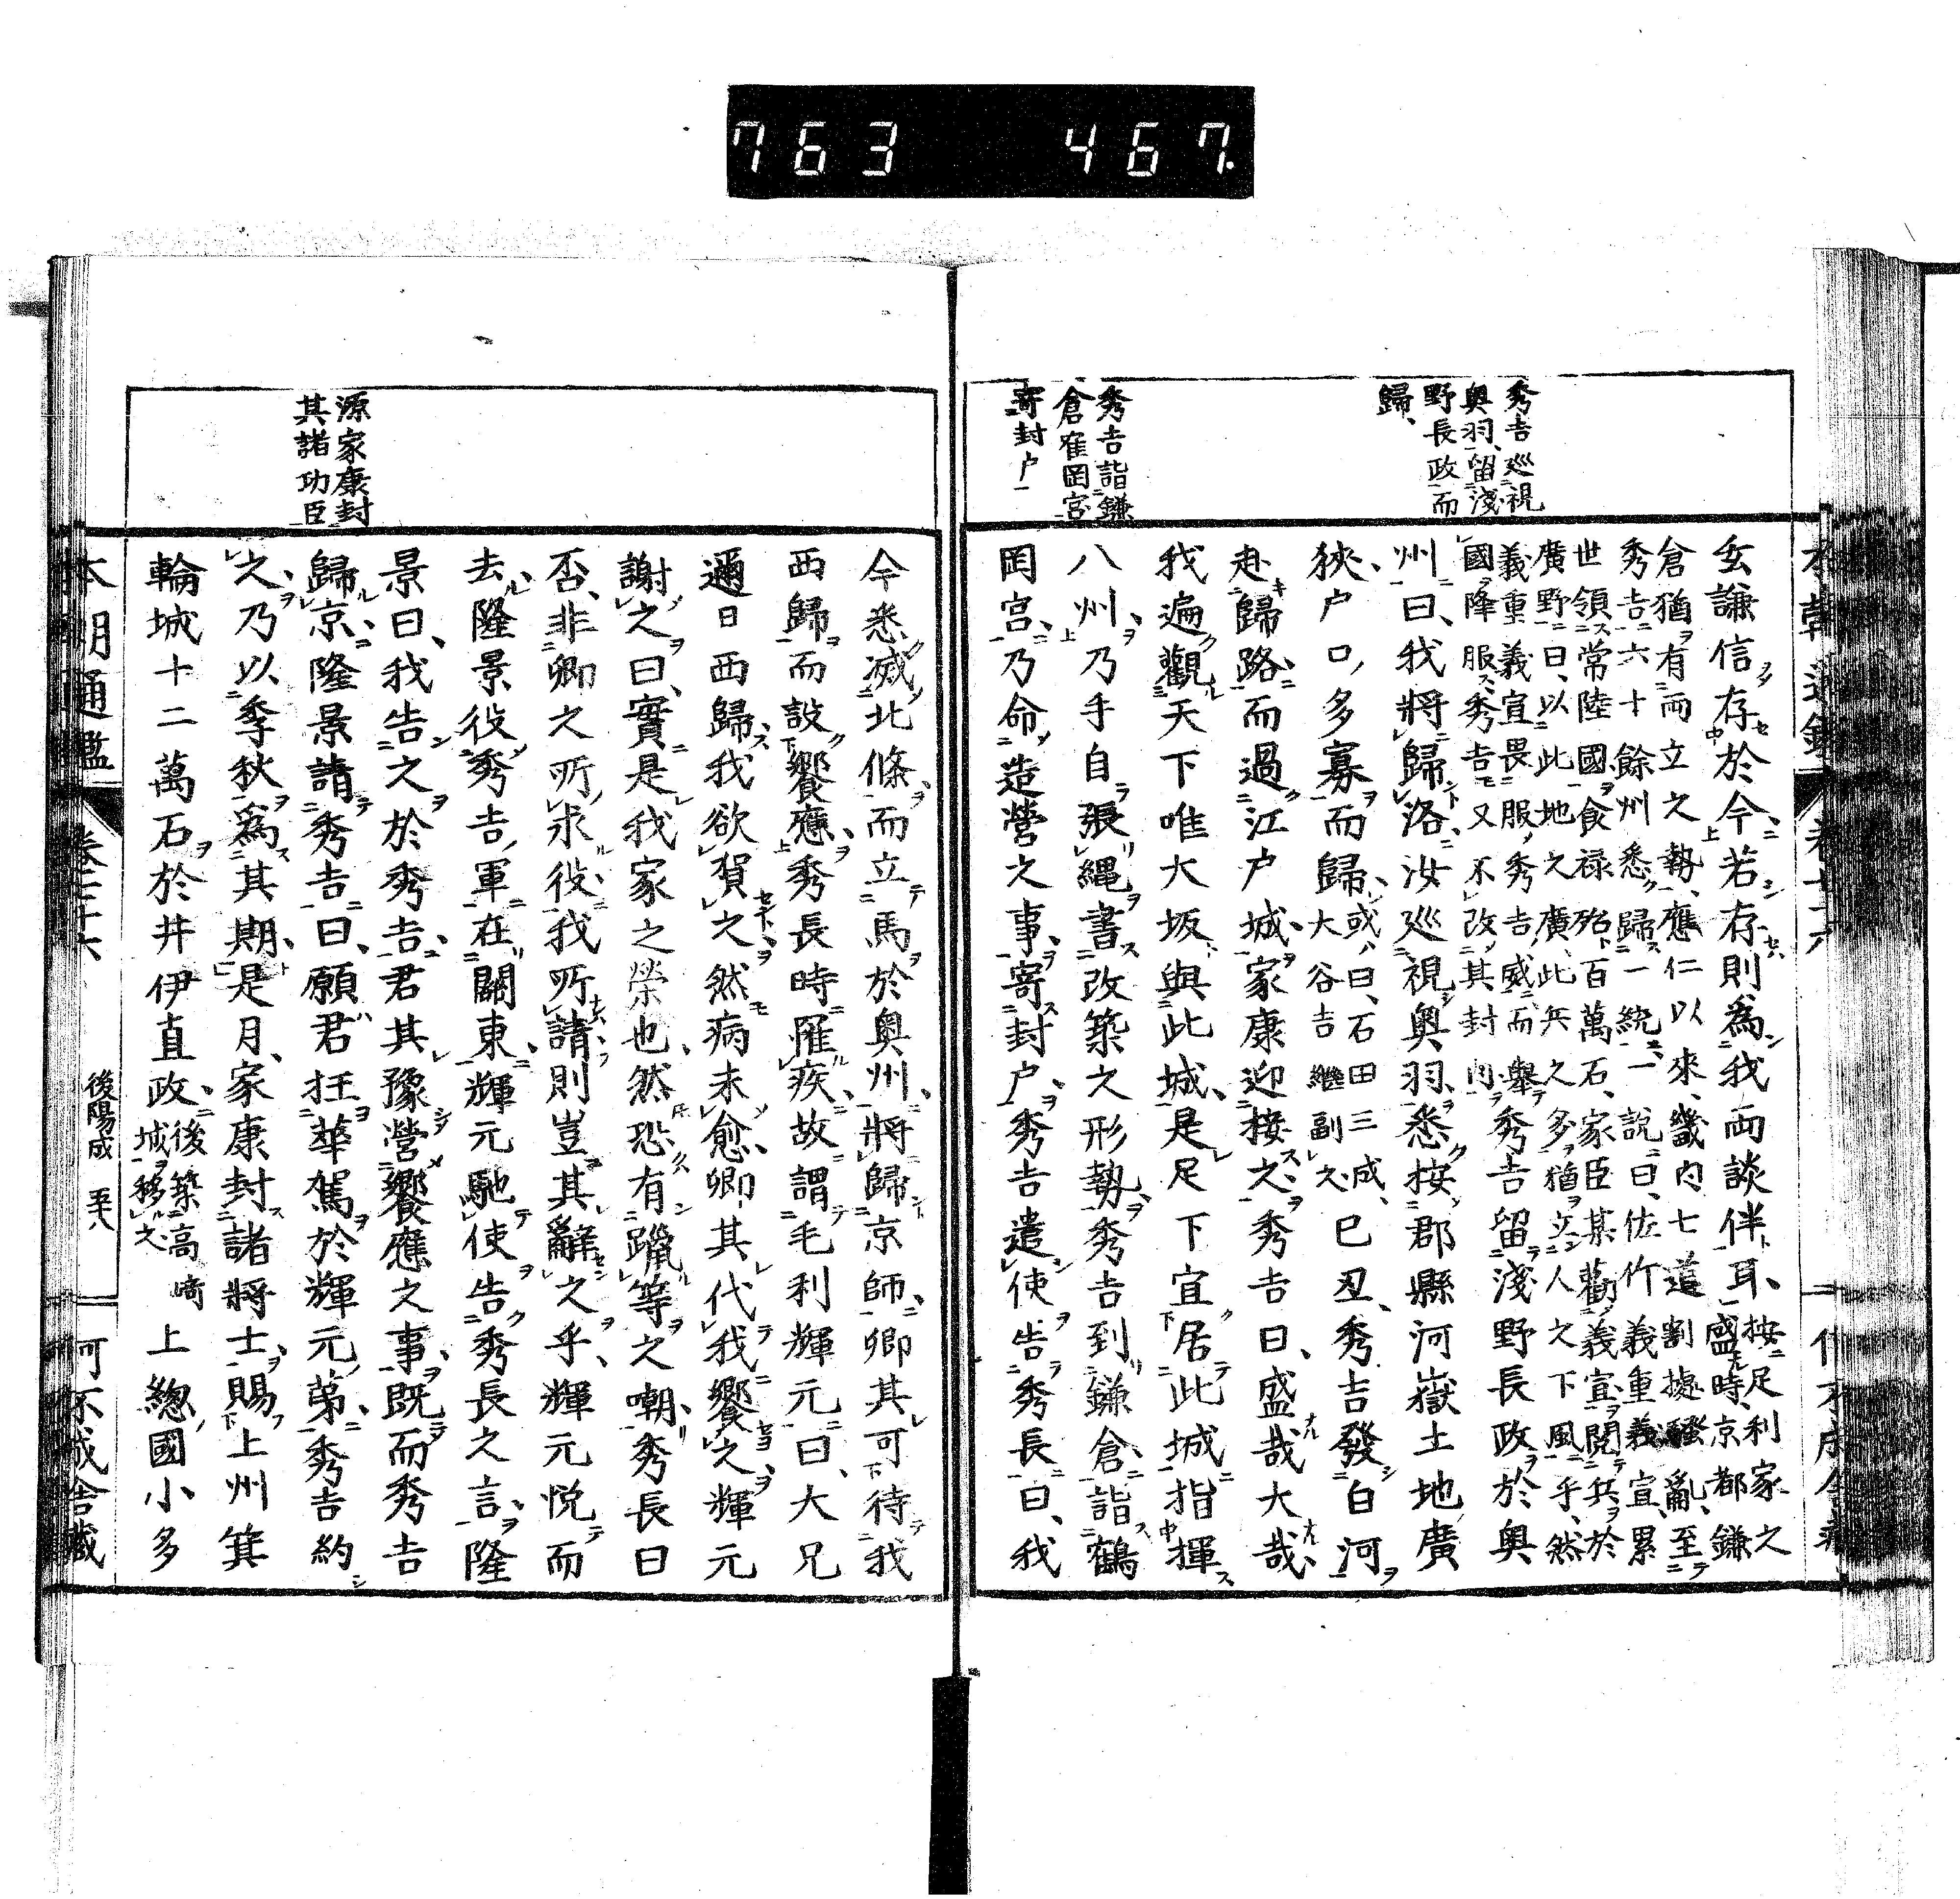 763 467.
秀吉巡視
奥羽、留淺
野長政而
歸、
秀吉詣鎌
倉寉罡宮
寄封戸
玄謙信存於今若存則為我両談伴耳、按足利家之
盛時、京都鎌
倉猶有両立之勢、應仁以來、畿内七道割據騒亂、至
秀吉六十餘州悉歸一統、一說曰、佐竹義重義宣、累
世領常陸國食禄殆百萬石、家臣某勸義宣閲兵於
廣野曰、以此地之廣、此兵之多、猶立人之下風乎、然
義重義宣畏服秀吉威而舉
國降服、秀吉又不改其封内、秀吉留淺野長政於奥
州曰、我將歸洛、汝巡視奥羽、悉按郡縣河嶽土地廣
狹、户口、多寡而歸、或曰、石田三成、
大谷吉継副之、已丑、秀吉發白河
赴歸路而過江户城、家康迎接之、秀吉曰、盛哉大哉
我遍觀天下唯大坂與此城、是足下宜居此城指揮
八州、乃手自張縄書改築之形勢、秀吉到鎌倉、詣鶴
罡宮、乃命造營之事、寄封户、秀吉遣使告秀長曰、我
今悉滅北條、而立馬於奥州、將歸京師、卿其可待我
西歸而設饗應、秀長時罹疾、故謂毛利輝元曰、大兄
邇日西歸、我欲賀之、然病未愈、卿其代我饗之、輝元
謝之曰、實是我家之榮也、然恐有躐等之嘲、秀長曰
否、非卿之所求役、我所請、則豈其辭之乎、輝元悦而
去、隆景役秀吉軍在關東、輝元馳使告秀長之言、隆
景曰、我告之於秀吉、君其豫營饗應之事、既而秀吉
歸京、隆景請秀吉曰、願君枉華駕於輝元第、秀吉約
之、乃以季秋為其期、是月、家康封諸將士、賜上州箕
輪城十二萬石於井伊直政、後築高﨑
城移之、上總國小多
源家康封
其諸功臣
本朝通鑑
後陽成